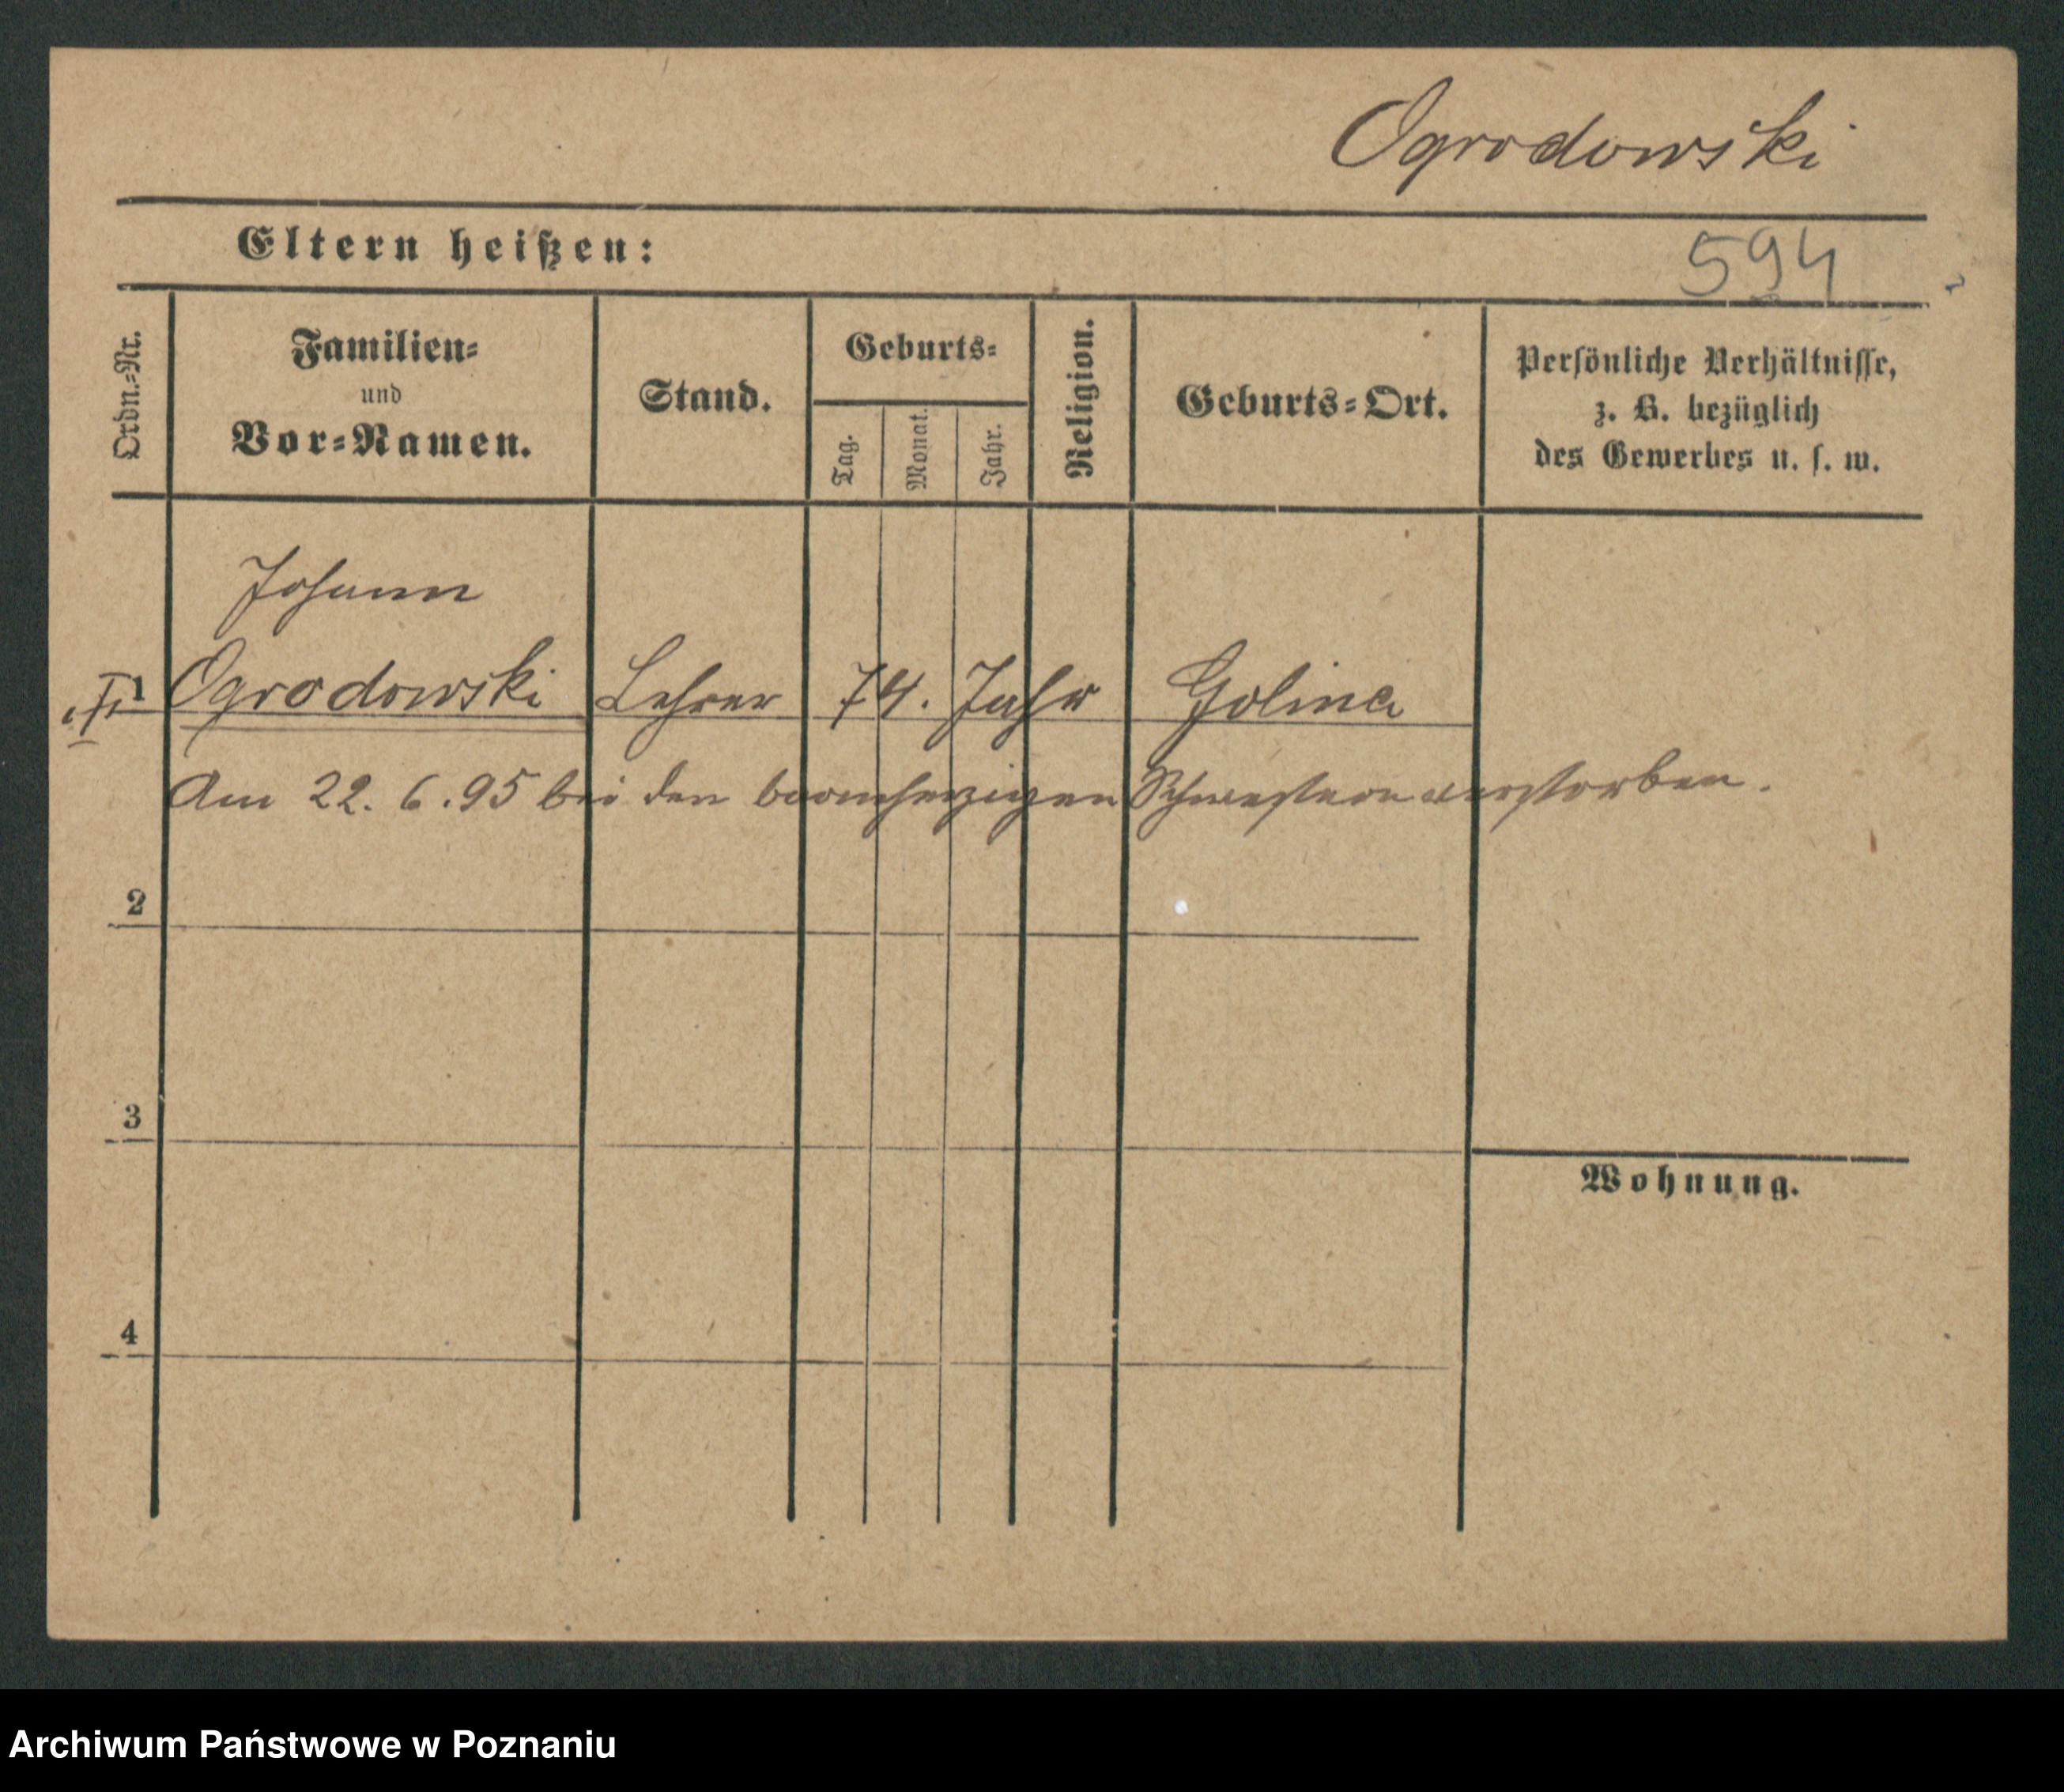 Ogrodowski
Eltern heißen:
594
Ordn.-Nr.
Familien-
und
Vor-Namen.
Stand.
Geburts-
Tag.
Monat.
Jahr.
Religion.
Geburts-Ort.
Persönliche Verhältnisse,
z. B. bezüglich
des Gewerbes u. s. w.
Johann
1 Ogrodowski Lehrer 74. Jahr Golina
Am 22. 6. 95 bei den barmherzigen Schwestern verstorben.
2
3
Wohnung.
4
Archiwum Państwowe w Poznaniu